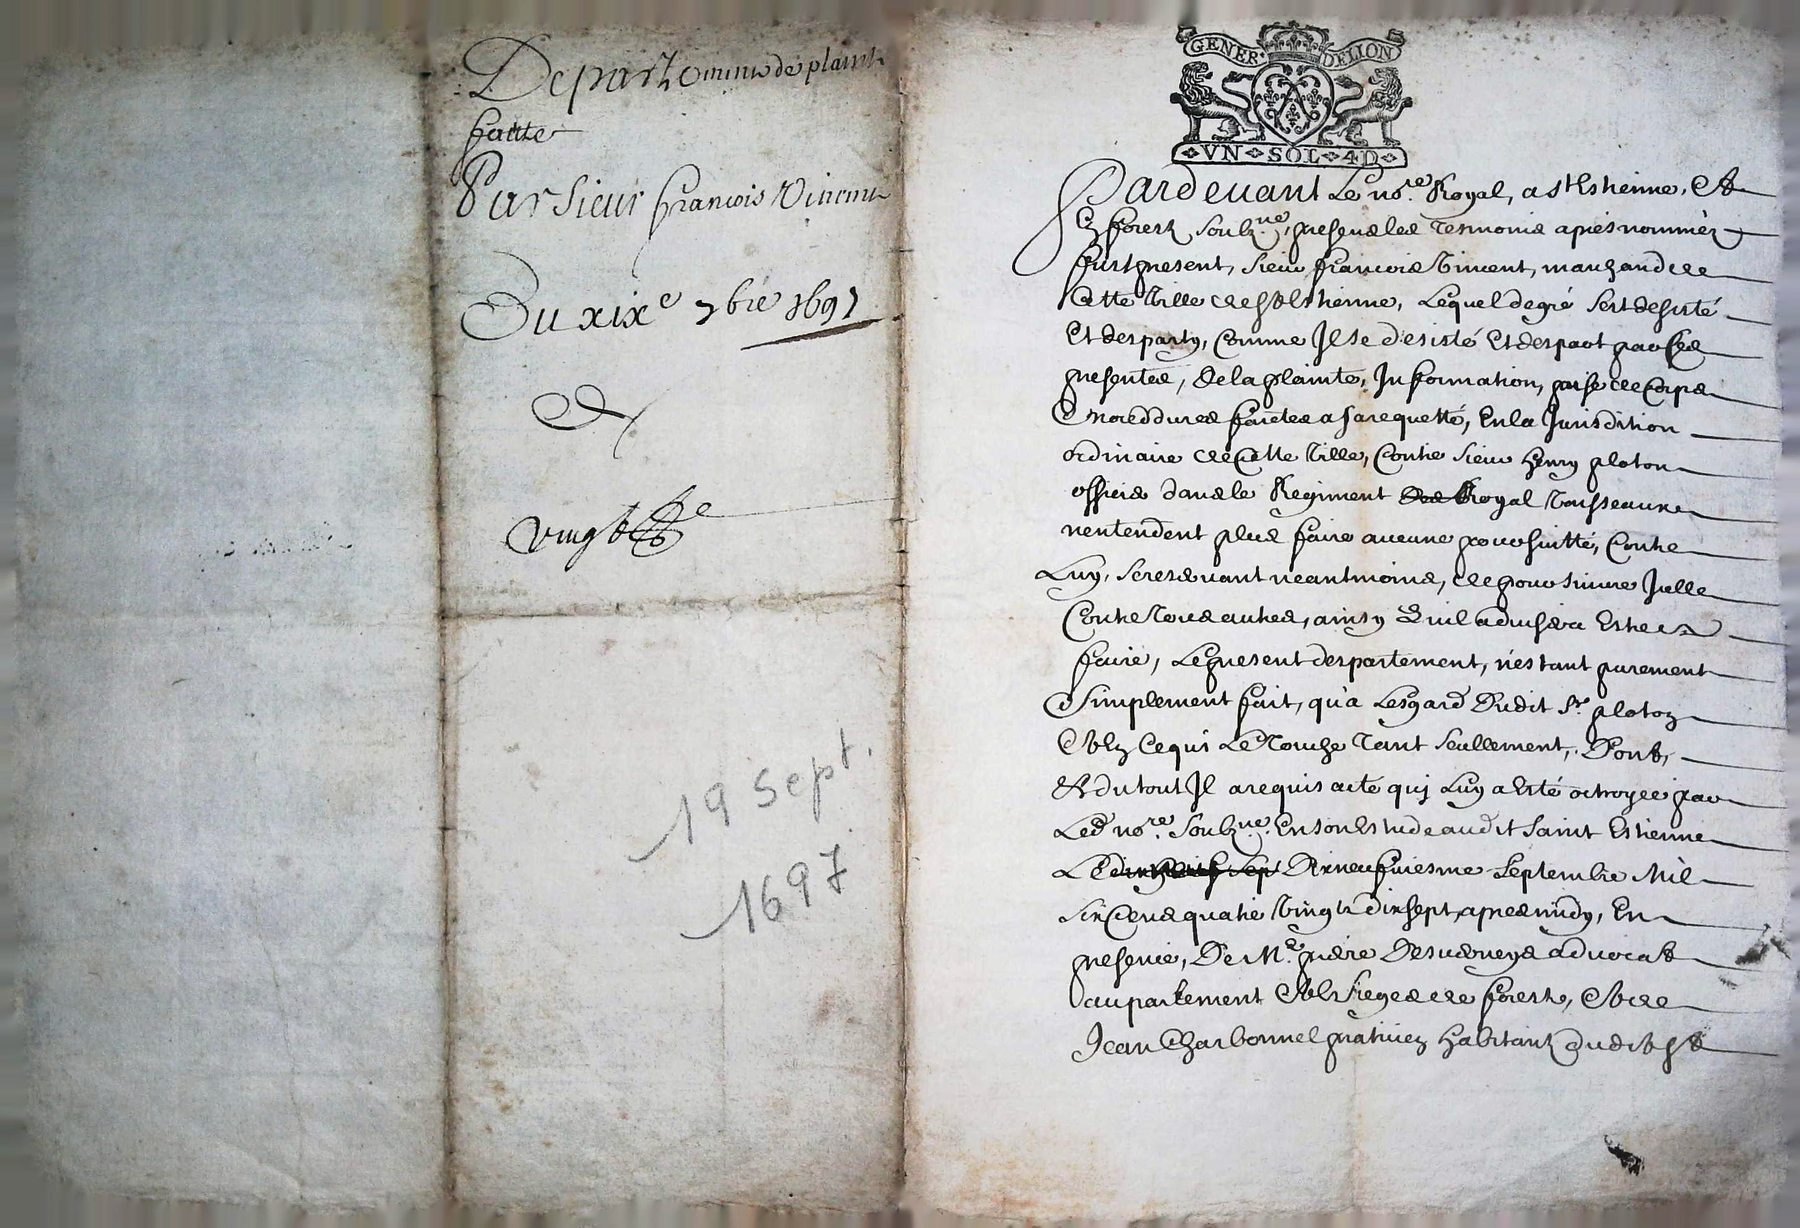 Departemans de plainte
faitte
Par Sieur francois Vincent
Du xixe 7bre 1697
19 Sept.
1697
GENER. DE LION
VN SOL 4D
Pardevant Le nore. Royal, a st Estienne, Et
En forest soubzne, presens les tesmoins apres nommez
fust present, sieur francois Vincent, marchand de
Cette Ville de st Estienne, Lequel de gré sest desisté
Et desparty, comme Il se desiste Et despart par ses
presentes, de la plainte, Information, prise de Corps
Et proceddures faictes a sa requette, En la Jurisdition
ordinaire de Cette Ville, Contre sieur henry ploton
officié dans le Regiment Royal Vaisseaux
nentendent plus faire aucune poursuitte, Contre
Luy, se reservant neantmoins, de poursuivre Icelle
Contre tous autres, ainsy Quil advisera Estre a
faire, Le present despartement, n'estant purement
Et simplement fait, qu'a Lesgard Dudit sr. ploton
Et En Ce qui Le Touche Tant seullement, Dont,
Et du tout Il a requis acte quj Luy a Esté octroyee par
Led nore. soubzne. En son Estude audit saint Estienne
Le Dixneufviesme Septembre Mil
six Cens quatre Vingtz dix sept, apres midy, En
presence, De Me. piere Desverneys advocat
au parlement Et Es sieges de forestz, Et de
Jean Charbonnel praticien habitantz dudit st